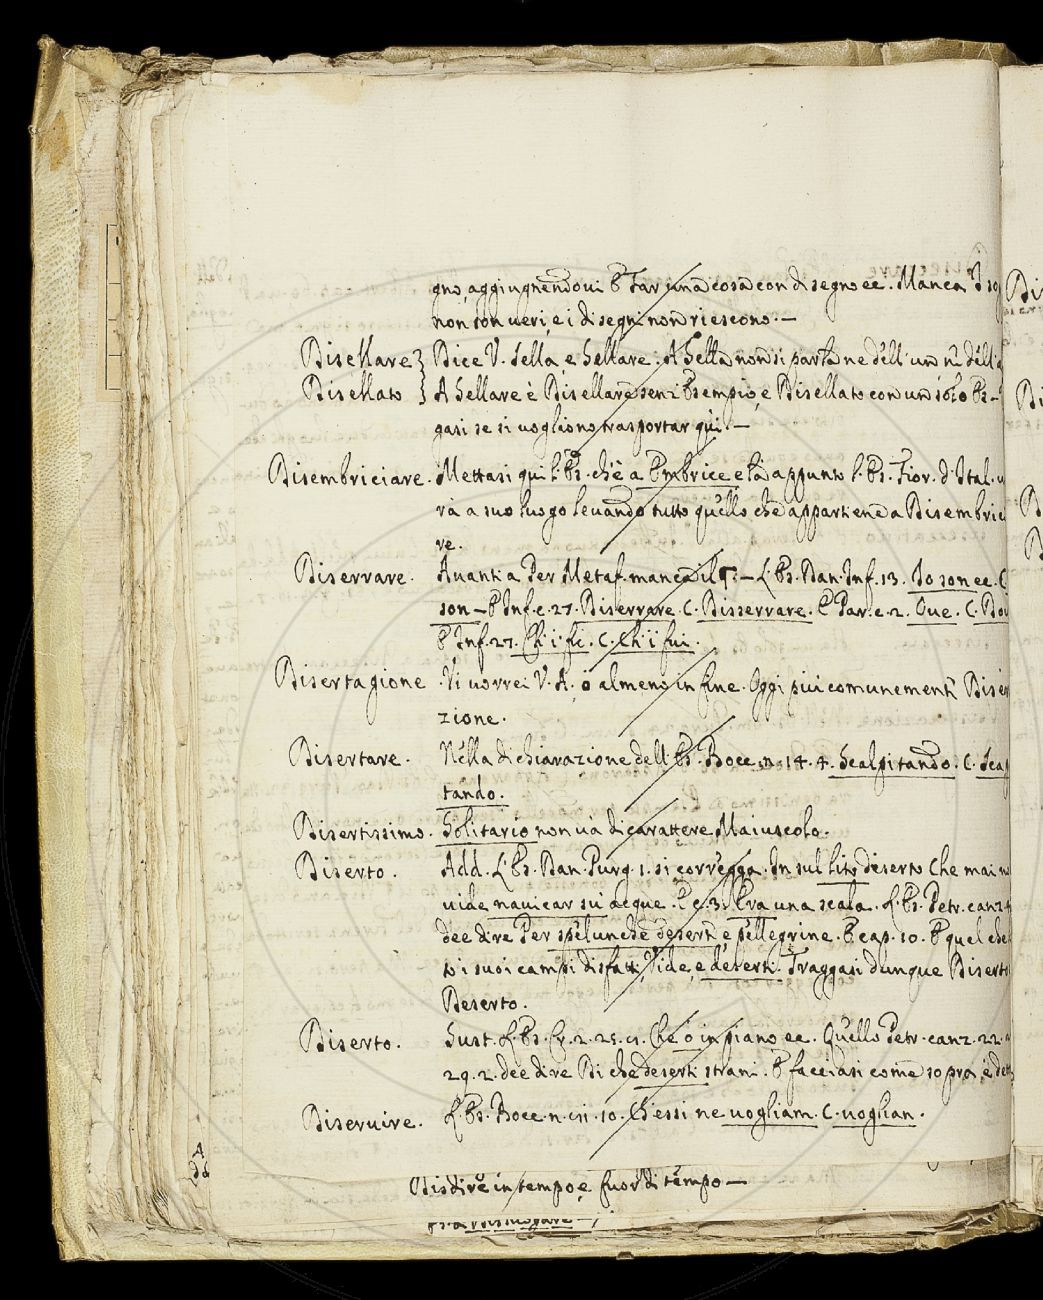 gno, aggiugnendovi E Far una cosa con disegno ec. Manca I so
non son veri, e i disegni non riescono. —
Disellare } Dice V. Sella, e Sellare. A Sella non si parla ne dell' un nè dell'
Disellato } A Sellare è Disellare senz' Esempio, e Disellato con un solo Es-
gasi se si vogliono trasportar qui. —
Disembriciare. Mettasi qui l' Es. ch'è a Embrice e là appunto l' Es. Fior. d' Ital.
rà a suo luogo levando tutto quello che appartiene a Disembricia
re.
Diserrare. Avanti a Per Metaf. manca il §. — L' Es. Dan. Inf. 13. Io son ec. C.
son — E Inf. c. 27. Diserrare C. Disserrare. E Par. c. 2. Ove. C. Dov
E Inf. 27. Ch' i' fi. C. Ch' i' fui.
Disertagione. Vi vorrei V. A. o almeno in fine. Oggi più comunemente Diser
zione.
Disertare. Nella dichiarazione dell' Es. Bocc. n. 14. 4. Scalpitando. C. Scap
tando.
Disertissimo. Solitario non và di carattere Maiuscolo.
Diserto. Add. L' Es. Dan. Purg. 1. si corregga. In sul lito diserto Che mai n
vide navicar sui acque. E c. 3. Era una scala. L' Es. Petr. canz.
dee dire Per spelunche deserte, e pellegrine. E cap. 10. E quel che
to i suoi campi disfatti Vide, e deserti. Traggasi dunque Diserto
Deserto.
Diserto. Sust. L' Es. Cr. 2. 25. 11. Che o in piano ec. Quello Petr. canz. 22.
29. 2. dee dire Di che deserti strani. E facciasi come sopra, è det
Diservire. L' Es. Bocc. n. 10. Ch' essi ne vogliam. C. voglian.
Disdire in tempo, e fuor di tempo —